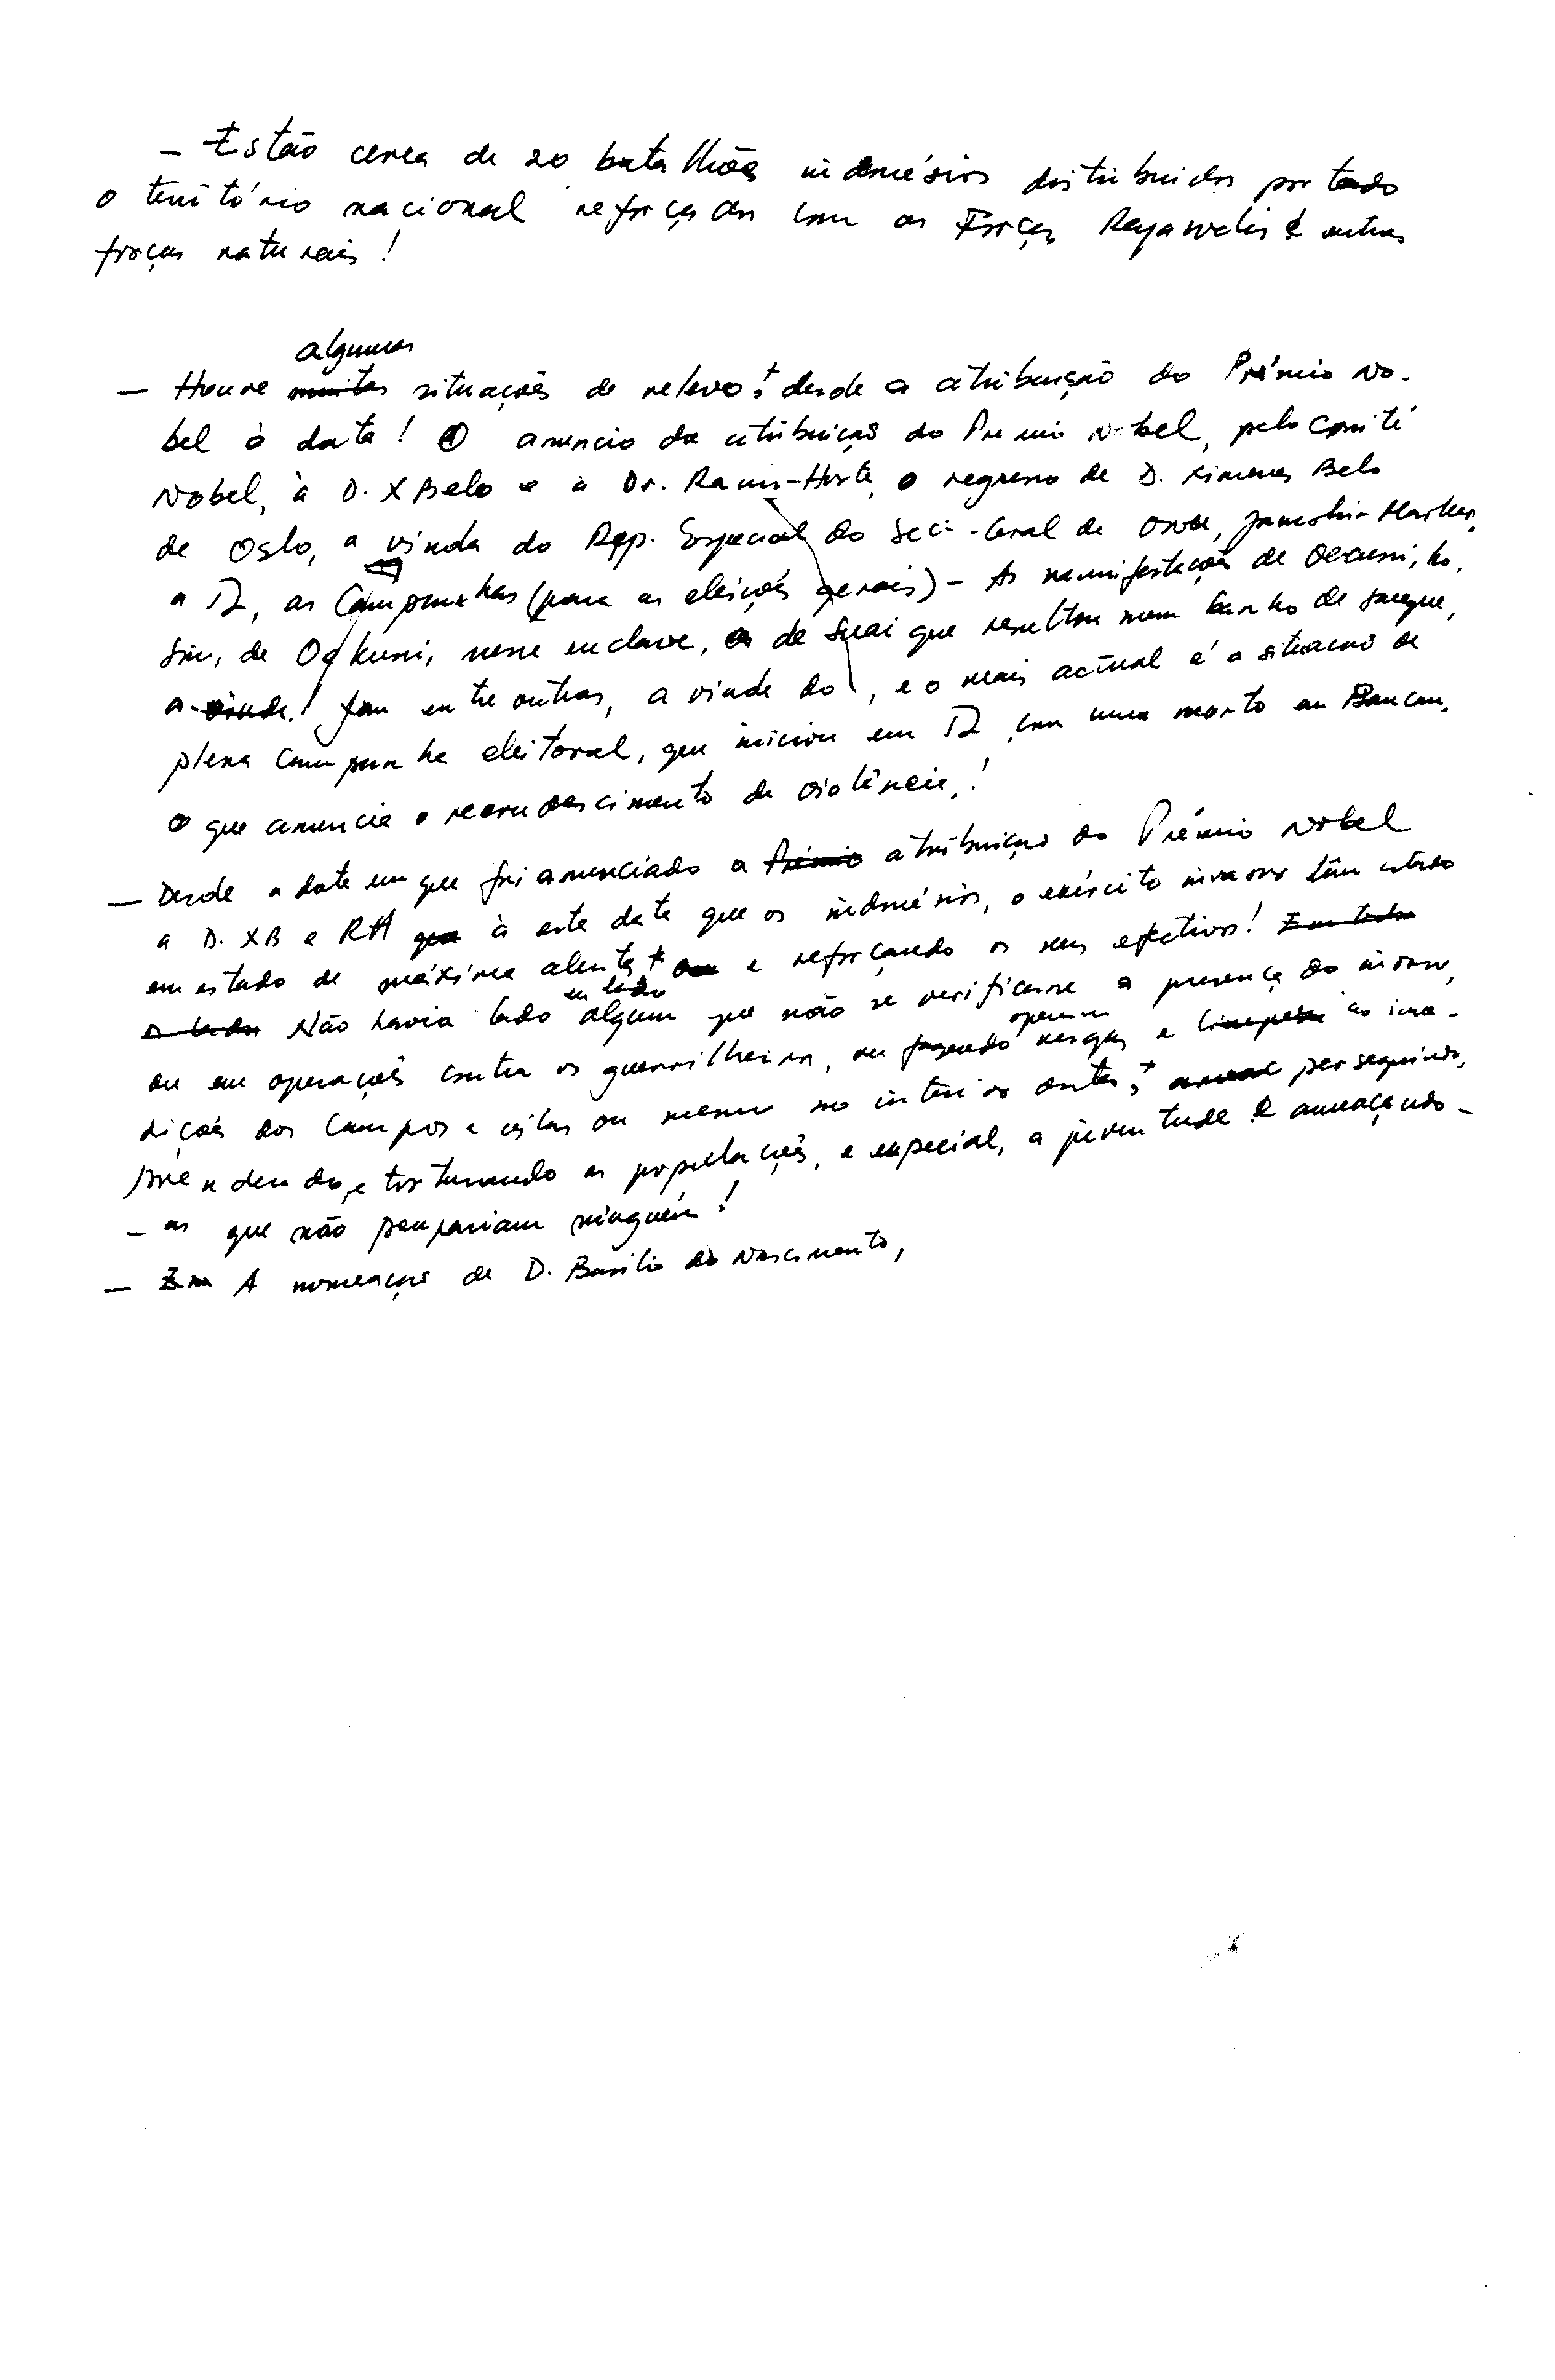 - Estão cerca de 20 batalhões indonésios distribuidos por todo
o território nacional reforçados com as Forças Rajawalis e outras
forças naturais!
algumas
- Houve muitas situações de relevo, desde a atribuição do Prémio No-
bel à data! O anuncio da atribuição do Premio Nobel, pelo Comité
Nobel, à D. X Belo e a Dr. Ramos-Horta, o regresso de D. Ximenes Belo
de Oslo, a vinda do Rep. Especial do Sec-Geral da ONU, Jamshir Marker,
a TL, as Campanhas (para as eleições gerais) - As manifestações de Oecussi, ho,
sim, de Oekussi, nesse enclave, as de Suai que resultou num banho de sangue,
a vinda! foram entre outras, a vinda do, e o mais actual é a situação de
plena campanha eleitoral, que iniciou em TL com uma morto em Baucau,
o que anuncia o recrudescimento da violência,!
- Desde a data em que foi anunciado a Prémio atribuição do Prémio Nobel
a D. XB e RH que à esta data que os indonésios, o exército invasor têm estado
em estado de máxima alerta e reforçando os seus efectivos! Em todos
o lados Não havia lado algum que não se verificasse a presença do invasor,
em lado
ou em operações contra os guerrilheiros, ou fazendo rusgas e limpesa às ime-
dições dos Campos e vilas ou mesmo no interior destas, perseguindo,
prendendo, e torturando as populações, e especial, a juventude e ameaçando-
- as que não poupariam ninguém!
- Em A nomeação de D. Basilio do Nascimento,